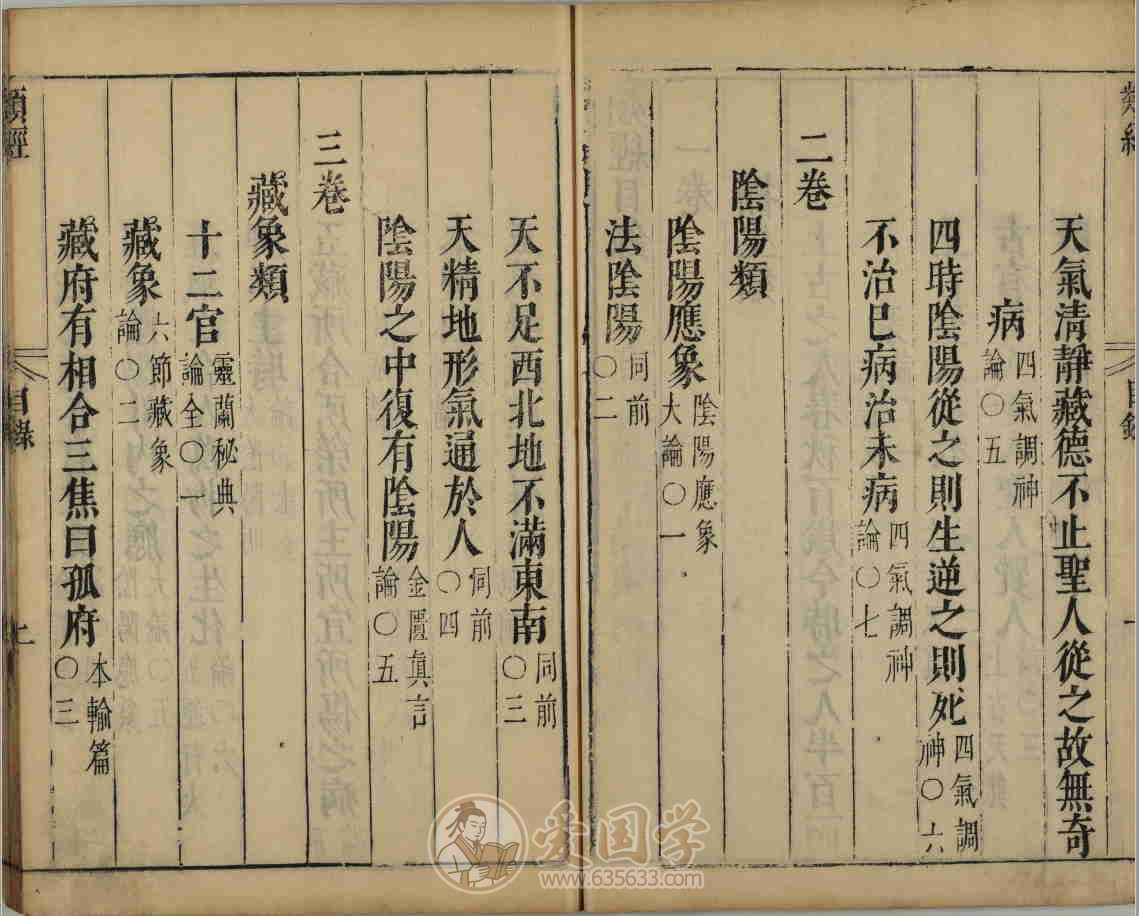 天氣清靜藏德不止聖人從之故無奇
病 四氣調神論○五
四時陰陽從之則生逆之則死 四氣調神○六
不治已病治未病 四氣調神論○七
二卷
陰陽類
陰陽應象 陰陽應象大論○一
法陰陽 同前○二
天不足西北地不滿東南 同前○三
天精地形氣通於人 同前○四
陰陽之中復有陰陽 金匱眞言論○五
三卷
藏象類
十二官 靈蘭秘典論全○一
藏象 六節藏象論○二
藏府有相合三焦曰孤府 本輸篇○三
類經 目錄 上
爱国学
www.635633.com